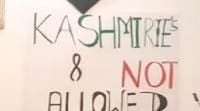 KASHMIRIE'S
& NOT
ALLOWED